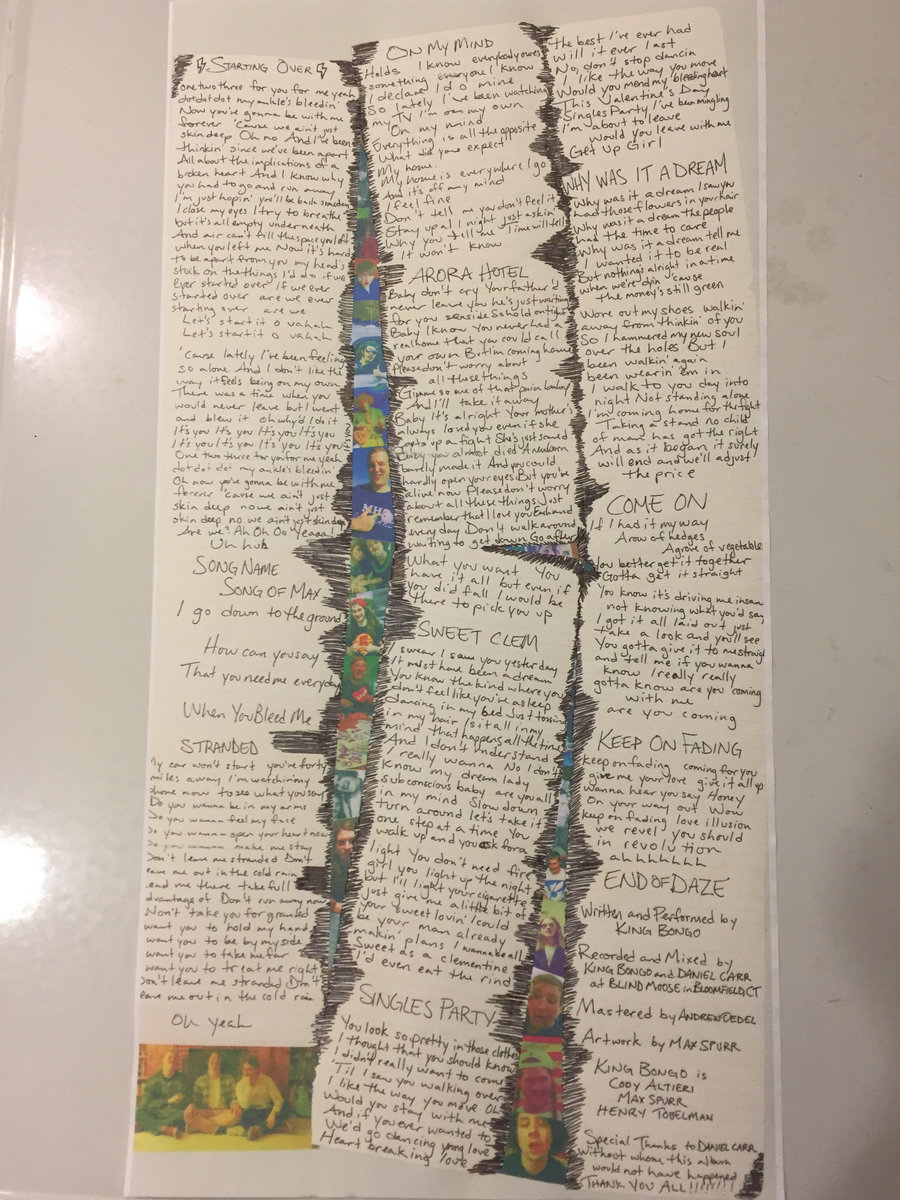 STARTING OVER
one two three for you for me yeah
dot dot dot my ankle's bleedin'
Now you're gonna be with me
forever 'cause we ain't just
skin deep Oh no And I've been
thinkin' since we've been apart
All about the implications of a
broken heart And I know why
you had to go and run away
I'm just hopin' you'll be back someday
I close my eyes I try to breathe
but it's all empty underneath
And air can't fill the space you left
when you left me Now it's hard
to be apart from you my head's
stuck on the things I'd do if we
ever started over if we ever
started over are we ever
starting over are we
Let's start it o vahah
Let's start it o vahah
'Cause lately I've been feeling
so alone And I don't like the
way it feels being on my own
There was a time when you
would never leave but I went
and blew it oh why'd I do it
It's you It's you It's you It's you
It's you It's you It's you It's you
One two three for you for me yeah
dot dot dot my ankle's bleedin'
Oh now you're gonna be with me
forever 'cause we ain't just
skin deep no we ain't just
skin deep no we ain't just skin deep
Are we? Ah Oh Oo Yeaaa!
Uh huh
SONG NAME
SONG OF MAX
I go down to the ground
How can you say
That you need me everyday
When You Bleed Me
STRANDED
My car won't start you're forty
miles away I'm watchin' my
phone now to see what you say
Do you wanna be in my arms
Do you wanna feel my face
Do you wanna open your heart now
Do you wanna make me stay
Don't leave me stranded Don't
leave me out in the cold rain
send me there take full
advantage of Don't run away now
Won't take you for granted
want you to hold my hand
want you to be by my side
want you to take me far
want you to treat me right
Don't leave me stranded Don't
leave me out in the cold rain
Oh yeah
ON MY MIND
Holds I know everybody owes
something everyone I know
I declare I do mine
So lately I've been watching
my TV I'm on my own
On my mind
Everything is all the opposite
What did you expect
My home
My home is everywhere I go
And it's off any mind
I feel fine
Don't tell me you don't feel it
Stay up all night just askin'
Why you tell me Time will tell
It won't know
ARORA HOTEL
Baby don't cry Your father'd
never leave you he's just waiting
for you seaside So hold on tight
Baby I know You never had a
real home that you could call
your own But I'm coming home
Please don't worry about
all these things
Gimme some of that pain baby
And I'll take it away
Baby It's alright Your mother's
always loved you even if she
puts up a fight She's just scared
Baby you almost died A newborn
barely made it And you could
hardly open your eyes But you're
alive now Please don't worry
about all these things Just
remember that I love you Each and
every day Don't walk around
waiting to get down Go after
What you want You
have it all but even if
you did fall I would be
there to pick you up
SWEET CLEM
I swear I saw you yesterday
It must have been a dream
You know the kind where you
don't feel like you're asleep
dancing in my bed Just tossing
in my hair sit all in my
mind that happens all the time
And I don't understand
I really wanna No I don't
Know my dream lady
subconscious baby are you all
in my mind Slow down
turn around let's take it
one step at a time You
walk up and you ask for a
light You don't need fire
girl you light up the night
but I'll light your cigarette
just give me a little bit of
your sweet lovin' I could
be your man already
makin' plans I wanna be all
Sweet as a clementine
I'd even eat the rind
SINGLES PARTY
You look so pretty in those clothes
I thought that you should know
I didn't really want to come
'Til I saw you walking over
I like the way you move Oh
Would you stay with me
And if you ever wanted to
We'd go dancing young love
Heart breaking love
the best I've ever had
will it ever last
No, don't stop dancin
I like the way you move
Would you mend my bleeding heart
This Valentine's Day
Singles Party I've been mingling
I'm about to leave
would you leave with me
Get Up Girl
WHY WAS IT A DREAM
Why was it a dream I saw you
had those flowers in your hair
Why was it a dream the people
had the time to care
Why was it a dream tell me
I wanted it to be real
But nothing's alright in a time
when we're dyin' 'cause
the money's still green
Wore out my shoes walkin'
away from thinkin' of you
So I hammered my new soul
over the holes But I
been walkin' again
been wearin' 'em in
I walk to you day into
night Not standing alone
I'm coming home for the fight
Taking a stand no child
of man has got the right
And as it began it surely
will end and we'll adjust
the price
COME ON
If I had it my way
A row of hedges
A grove of vegetables
You better get it together
Gotta get it straight
You know it's driving me insane
not knowing what you'd say
I got it all laid out just
take a look and you'll see
You gotta give it to me straight
and tell me if you wanna
know I really really
gotta know are you coming
with me
are you coming
KEEP ON FADING
keep on fading coming for you
give me your love give it all up
Wanna hear you say Honey
On your way out Wow
keep on fading love illusion
we revel you should
in revolution
ahhhhhhh
END OF DAZE
Written and Performed by
KING BONGO
Recorded and Mixed by
KING BONGO and DANIEL CARR
at BLIND MOOSE in BLOOMFIELD, CT
Mastered by ANDREW OEDEL
Artwork by MAX SPURR
KING BONGO is
CODY ALTIERI
MAX SPURR
HENRY TOBELMAN
Special Thanks to DANIEL CARR
without whom this album
would not have happened
THANK YOU ALL!!!!!!!!